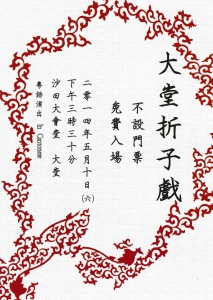 大堂折子戲
不設門票
免費入場
二零一四年五月十日(六)
下午三時三十分
沙田大會堂 大堂
粵語演出 In Cantonese